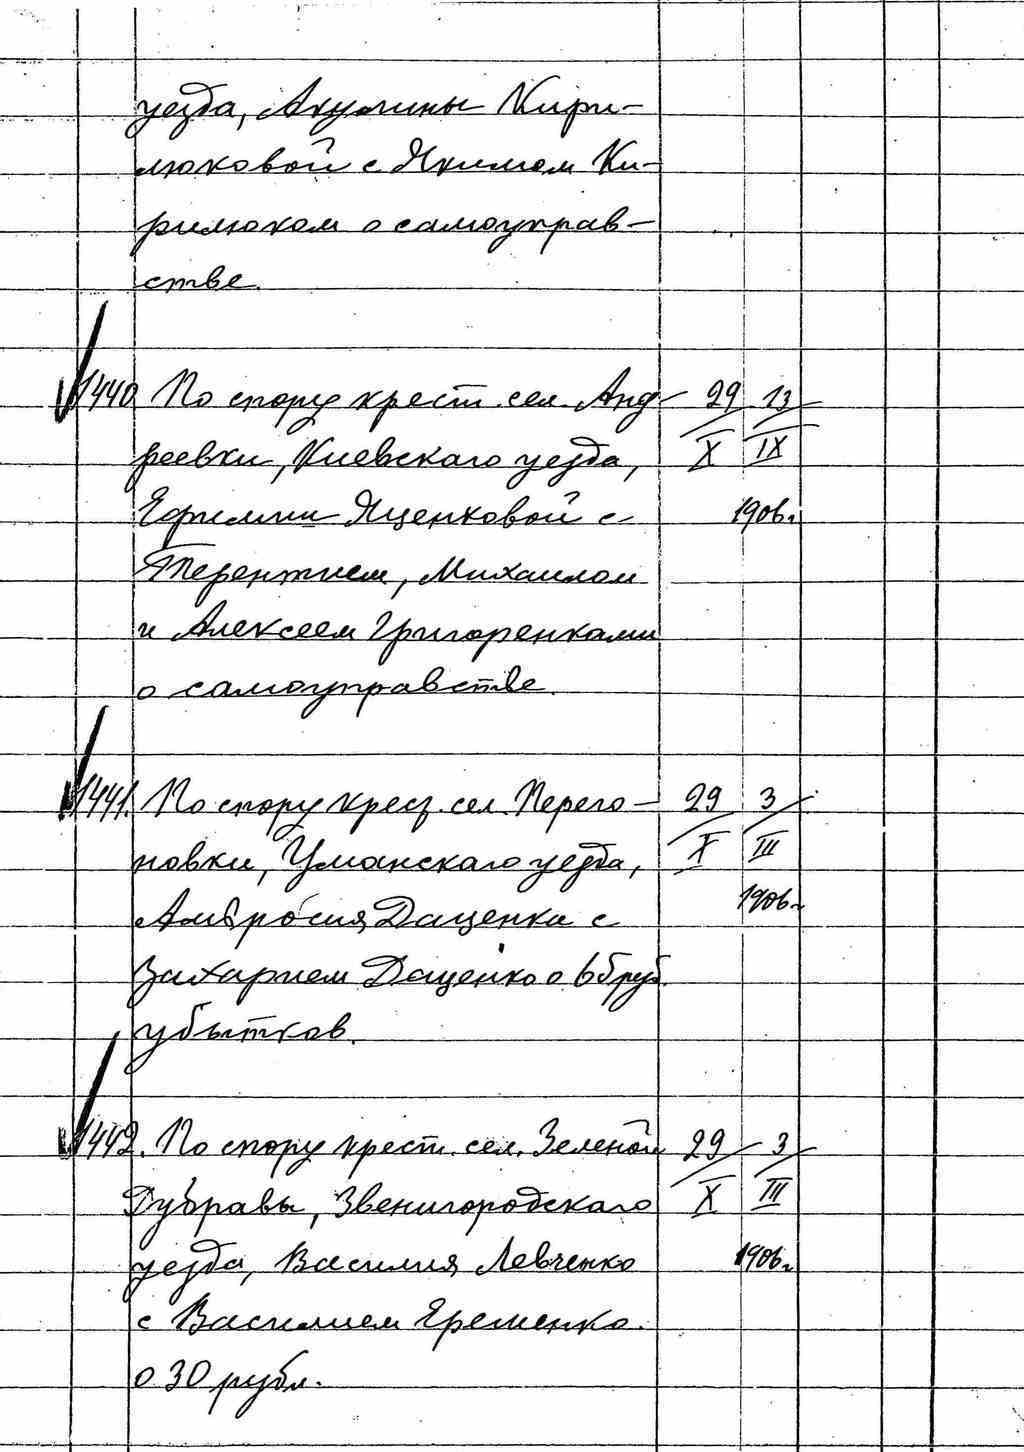 уезда, Акулины Кири-
люковой с Якимом Ки-
рилюком о самоуправ-
стве.
1440. По спору крест. сел. Анд- 29/X 13/IX
реевки, Киевскаго уезда,
Ефимии Яценковой с 1906г.
Терентием, Михаилом
и Алексеем Григоренками
о самоуправстве.
1441. По спору крест. сел. Перего- 29/X 3/III
новки, Уманскаго уезда,
Амвросия Даценки с 1906г.
Захарием Даценко о 65 руб.
убытков.
1442. По спору крест. сел. Зеленой 29/X 3/III
Дубравы, Звенигородскаго
уезда, Василия Левченко 1906г.
с Василием Еременко
о 30 рубл.